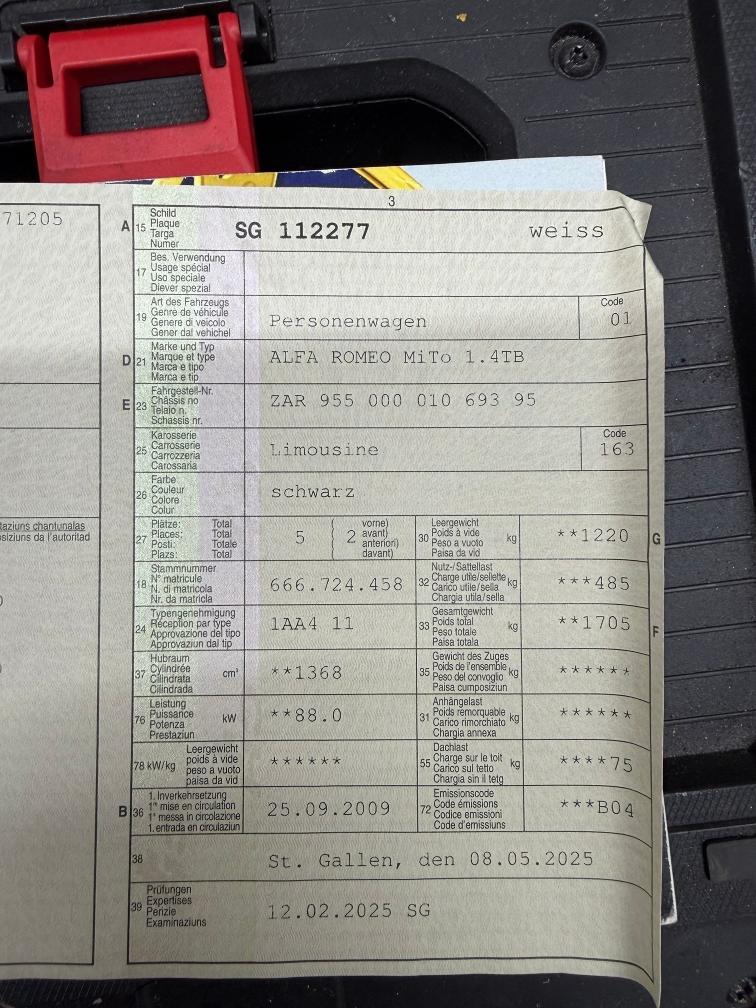 3
71205
A 15 Schild
Plaque
Targa
Numer
SG 112277 weiss
17 Bes. Verwendung
Usage spécial
Uso speciale
Diever spezial
19 Art des Fahrzeugs
Genre de véhicule
Genere di veicolo
Gener dal vehichel
Personenwagen
Code
01
D 21 Marke und Typ
Marque et type
Marca e tipo
Marca e tip
ALFA ROMEO MiTo 1.4TB
E 23 Fahrgestell-Nr.
Châssis no
Telaio n.
Schassis nr.
ZAR 955 000 010 693 95
25 Karosserie
Carrosserie
Carrozzeria
Carossaria
Limousine
Code
163
26 Farbe
Couleur
Colore
Colur
schwarz
27 Plätze: Total
Places: Total
Posti: Totale
Plazs: Total
5 ( 2 vorne)
avant)
anteriori)
davant)
30 Leergewicht
Poids à vide
Peso a vuoto
Paisa da vid
kg
**1220 G
18 Stammnummer
N° matricule
N. di matricola
Nr. da matricla
666.724.458
32 Nutz-/Sattellast
Charge utile/sellette
Carico utile/sella
Chargia utila/sella
kg
***485
24 Typengenehmigung
Réception par type
Approvazione del tipo
Approvaziun dal tip
1AA4 11
33 Gesamtgewicht
Poids total
Peso totale
Paisa totala
kg
**1705 F
37 Hubraum
Cylindrée
Cilindrata
Cilindrada
cm³
**1368
35 Gewicht des Zuges
Poids de l'ensemble
Peso del convoglio
Paisa cumposiziun
kg
******
76 Leistung
Puissance
Potenza
Prestaziun
kW
**88.0
31 Anhängelast
Poids remorquable
Carico rimorchiato
Chargia annexa
kg
******
78 kW/kg Leergewicht
poids à vide
peso a vuoto
paisa da vid
******
55 Dachlast
Charge sur le toit
Carico sul tetto
Chargia sin il tetg
kg
****75
B 36 1. Inverkehrsetzung
1re mise en circulation
1a messa in circolazione
1. entrada en circulaziun
25.09.2009
72 Emissionscode
Code émissions
Codice emissioni
Code d'emissiuns
***B04
38 St. Gallen, den 08.05.2025
39 Prüfungen
Expertises
Perizie
Examinaziuns
12.02.2025 SG
taziuns chantunalas
siziuns da l'autoritad